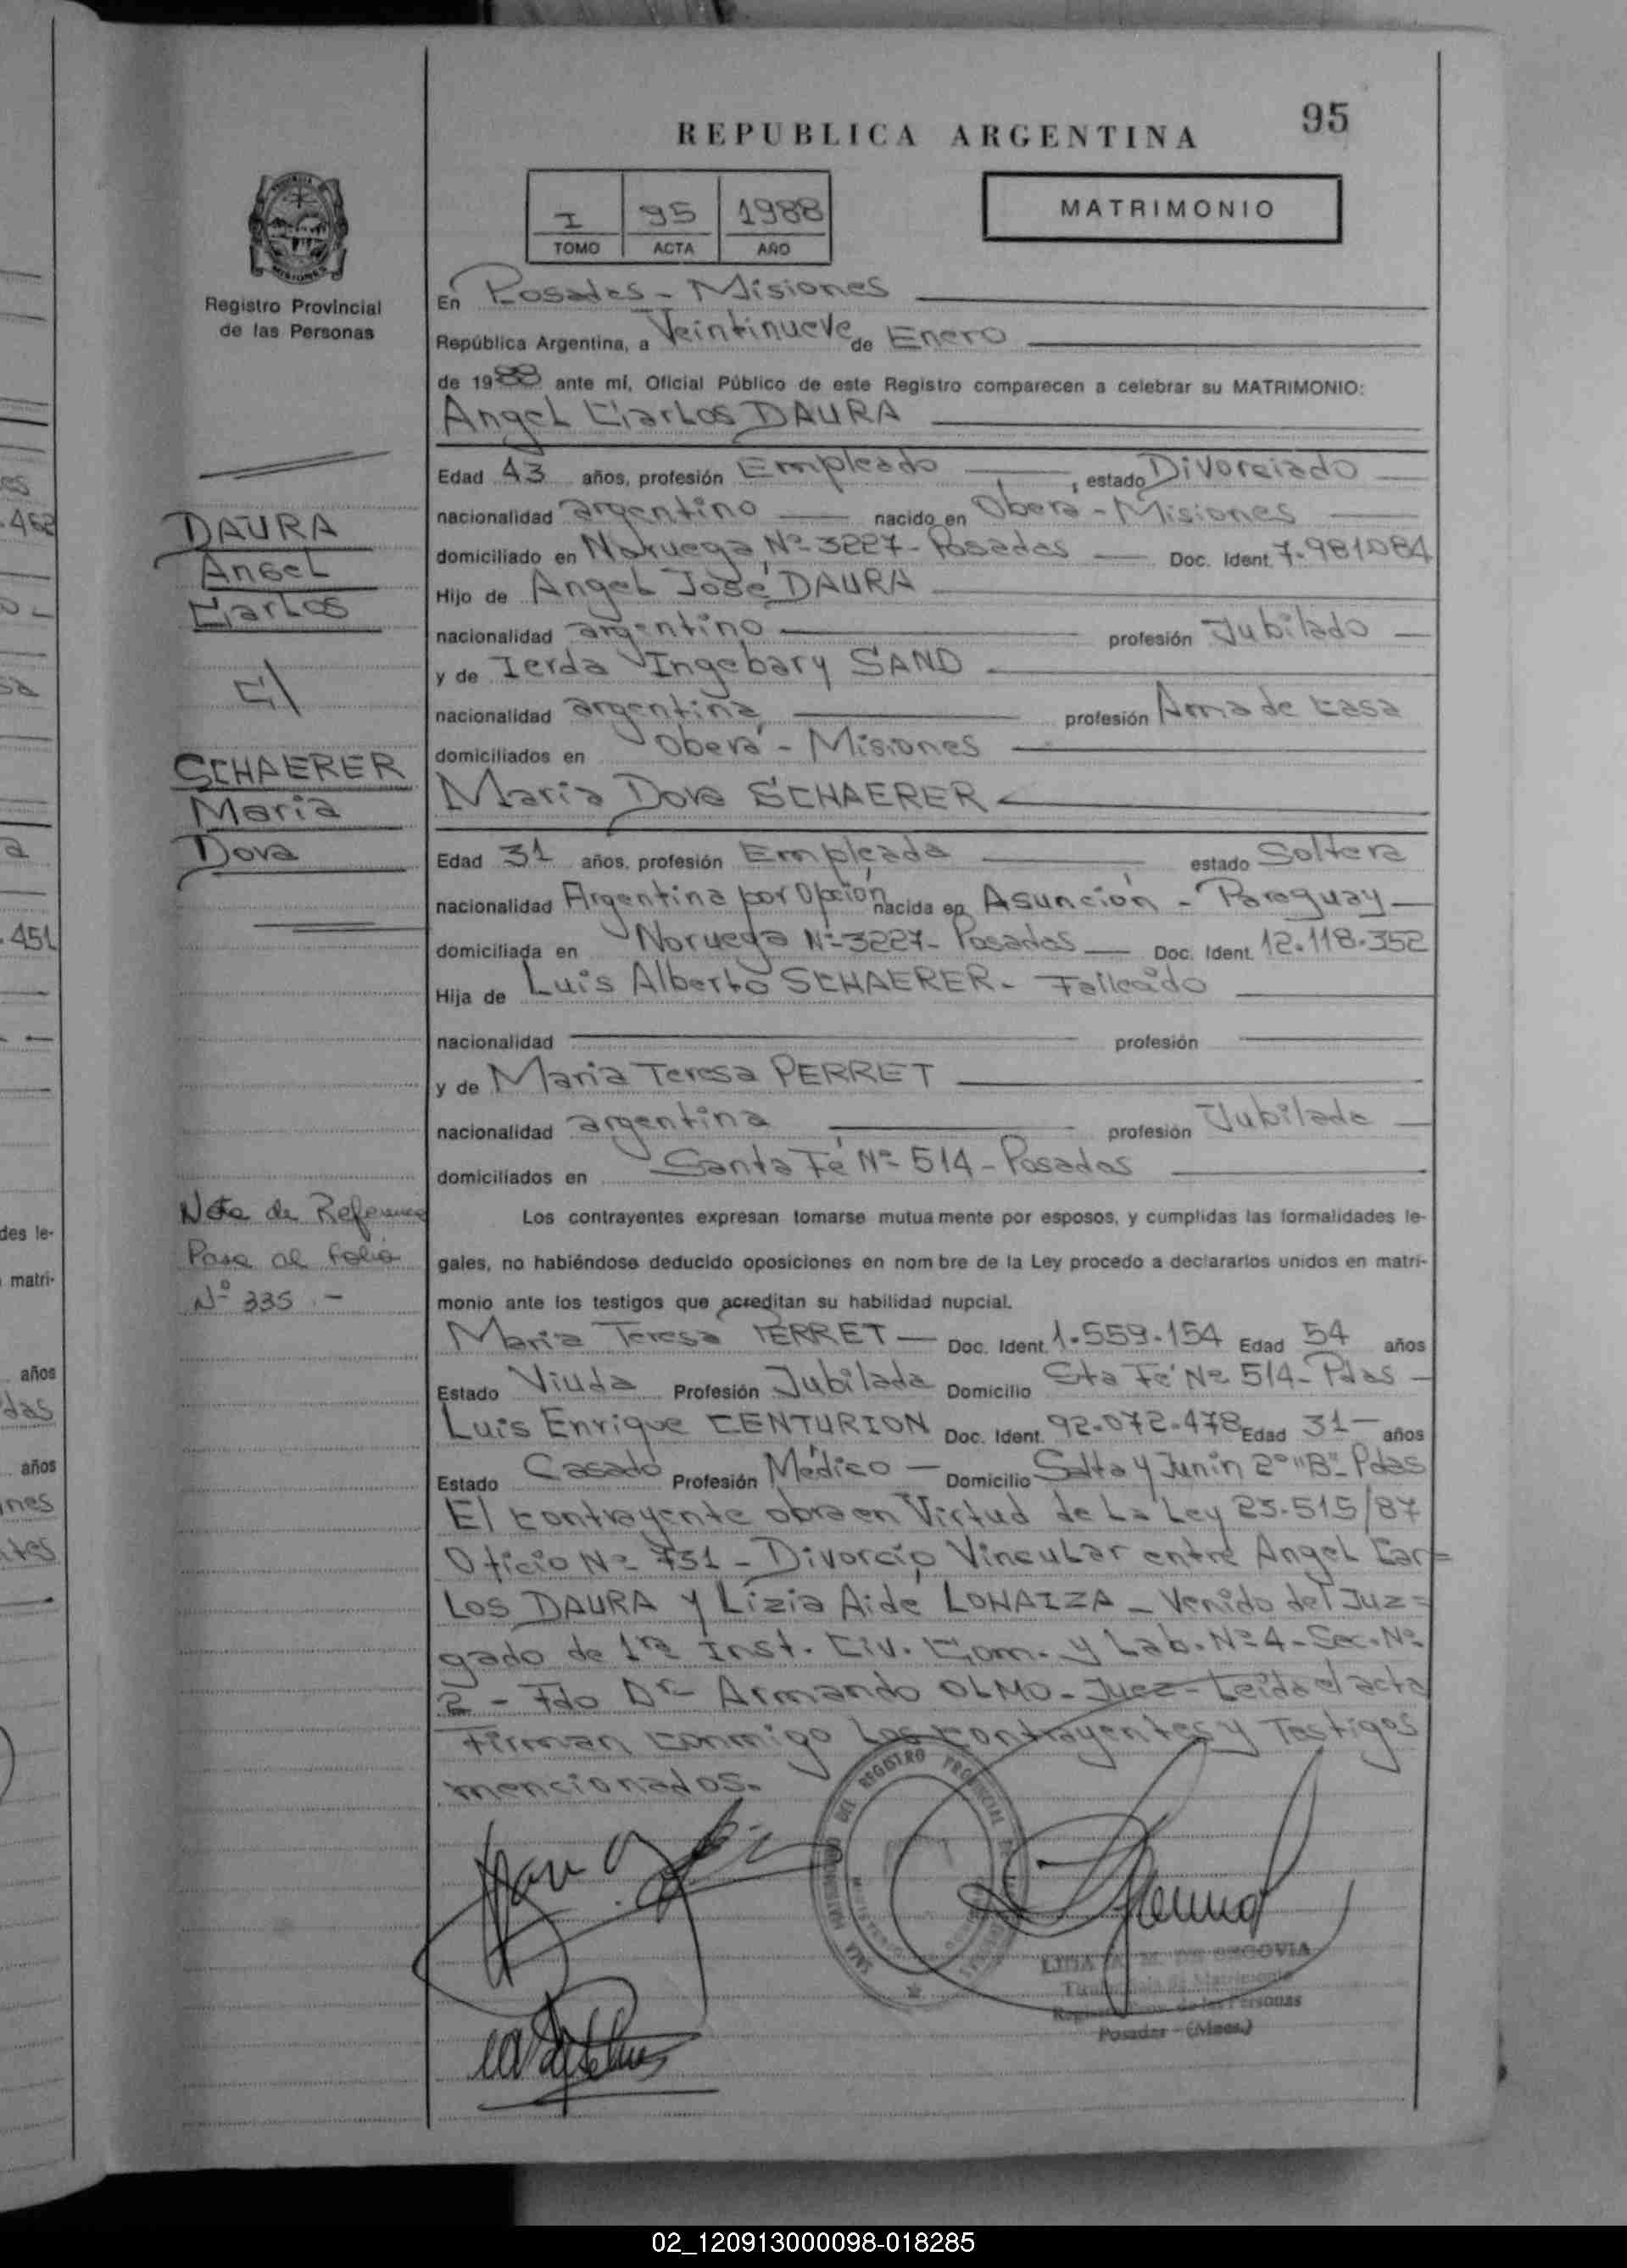 95
REPUBLICA ARGENTINA
I 95 1988
TOMO ACTA AÑO
MATRIMONIO
MISIONES
Registro Provincial
de las Personas
En Posadas - Misiones
República Argentina, a Veintinueve de Enero
de 1988 ante mí, Oficial Público de este Registro comparecen a celebrar su MATRIMONIO:
Angel Carlos DAURA
Edad 43 años, profesión Empleado, estado Divorciado
nacionalidad argentino nacido en Oberá - Misiones
domiciliado en Noruega Nº 3227 - Posadas Doc. Ident. 7.981.084
Hijo de Angel José DAURA
nacionalidad argentino profesión Jubilado
y de Ierda Ingebary SAND
nacionalidad argentina profesión Ama de casa
domiciliados en Oberá - Misiones
María Dora SCHAERER
Edad 31 años, profesión Empleada estado Soltera
nacionalidad Argentina por Opción nacida en Asunción - Paraguay
domiciliada en Noruega Nº 3227 - Posadas Doc. Ident. 12.118.352
Hija de Luis Alberto SCHAERER - Fallecido
nacionalidad profesión
y de María Teresa PERRET
nacionalidad argentina profesión Jubilada
domiciliados en Santa Fé Nº 514 - Posadas
Los contrayentes expresan tomarse mutua mente por esposos, y cumplidas las formalidades le-
gales, no habiéndose deducido oposiciones en nom bre de la Ley procedo a declararlos unidos en matri-
monio ante los testigos que acreditan su habilidad nupcial.
María Teresa PERRET Doc. Ident. 1.559.154 Edad 54 años
Estado Viuda Profesión Jubilada Domicilio Sta Fé Nº 514 - Pdas
Luis Enrique CENTURION Doc. Ident. 92.072.478 Edad 31 años
Estado Casado Profesión Médico Domicilio Salta y Junín 2º "B" - Pdas
El contrayente obra en Virtud de La Ley 23.515/87
Oficio Nº 731 - Divorcio Vincular entre Angel Car=
Los DAURA y Lizia Aidé LOHAIZA - Venido del Juz=
gado de 1ra Inst. Civ. Com. y Lab. Nº 4 - Sec. Nº
2 - Fdo Dr Armando OLMO - Juez - Leída el acta
Firman conmigo Los contrayentes y Testigos
mencionados.
DAURA
Angel
Carlos
c/
SCHAERER
María
Dora
Nota de Referencia
Pasa al folio
Nº 335 .-
DEL REGISTRO PROVINCIAL
DE SEGOVIA
Matrimonio
de las Personas
Posadas - (Mnes.)
es
.462
sa
a
.451
des le-
matri-
años
das
años
nes
tes
02_120913000098-018285